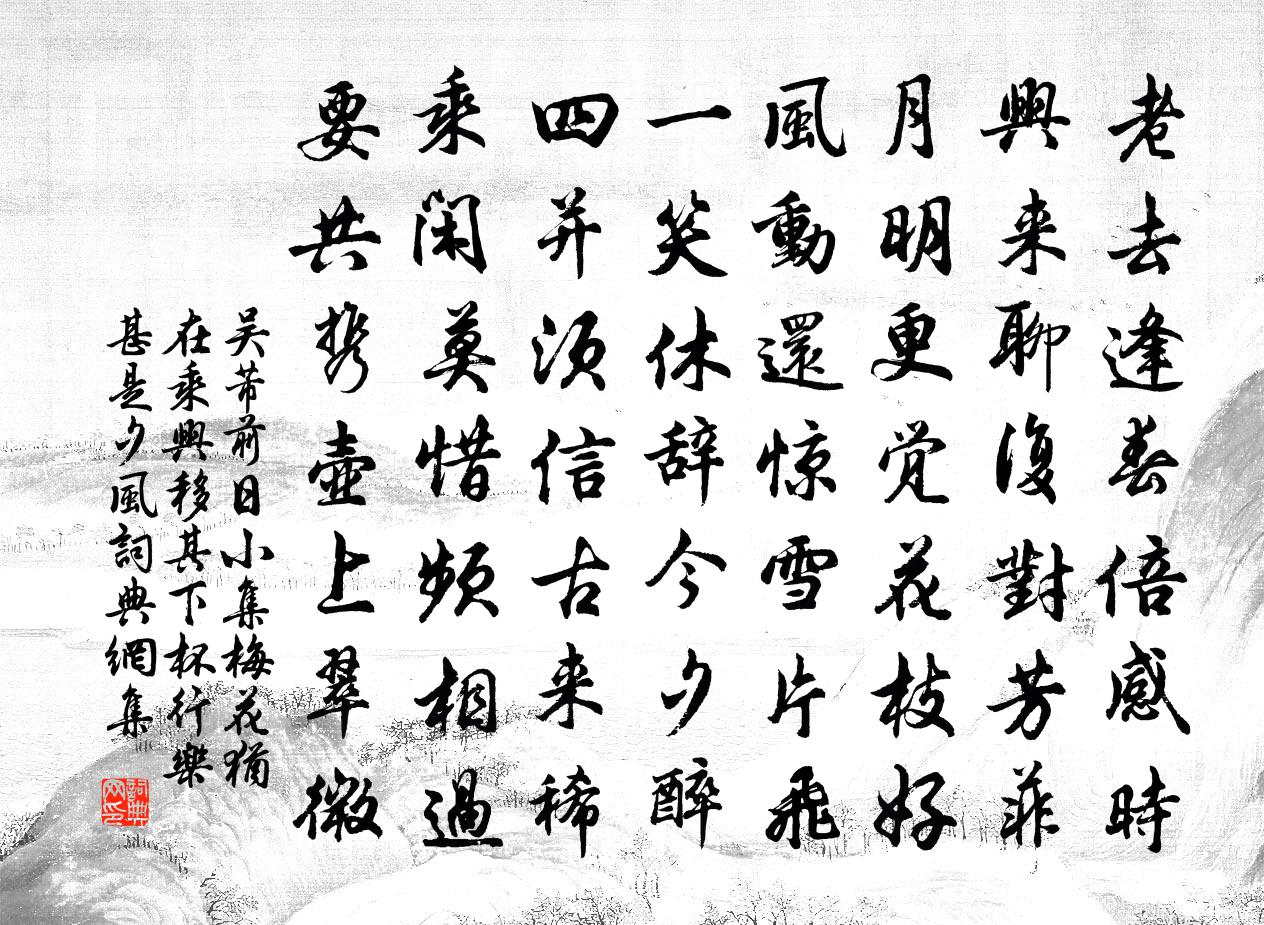 老去逢春倍感時
興来聊復對芳菲
月明更覚花枝好
風動還惊雪片飛
一笑休辞今夕醉
四并須信古来稀
乘闲莫惜頻相過
要共携壶上翠微
吴芾前日小集梅花猶
在乘興移其下杯行樂
甚是夕風詞典網集
詞典
网印